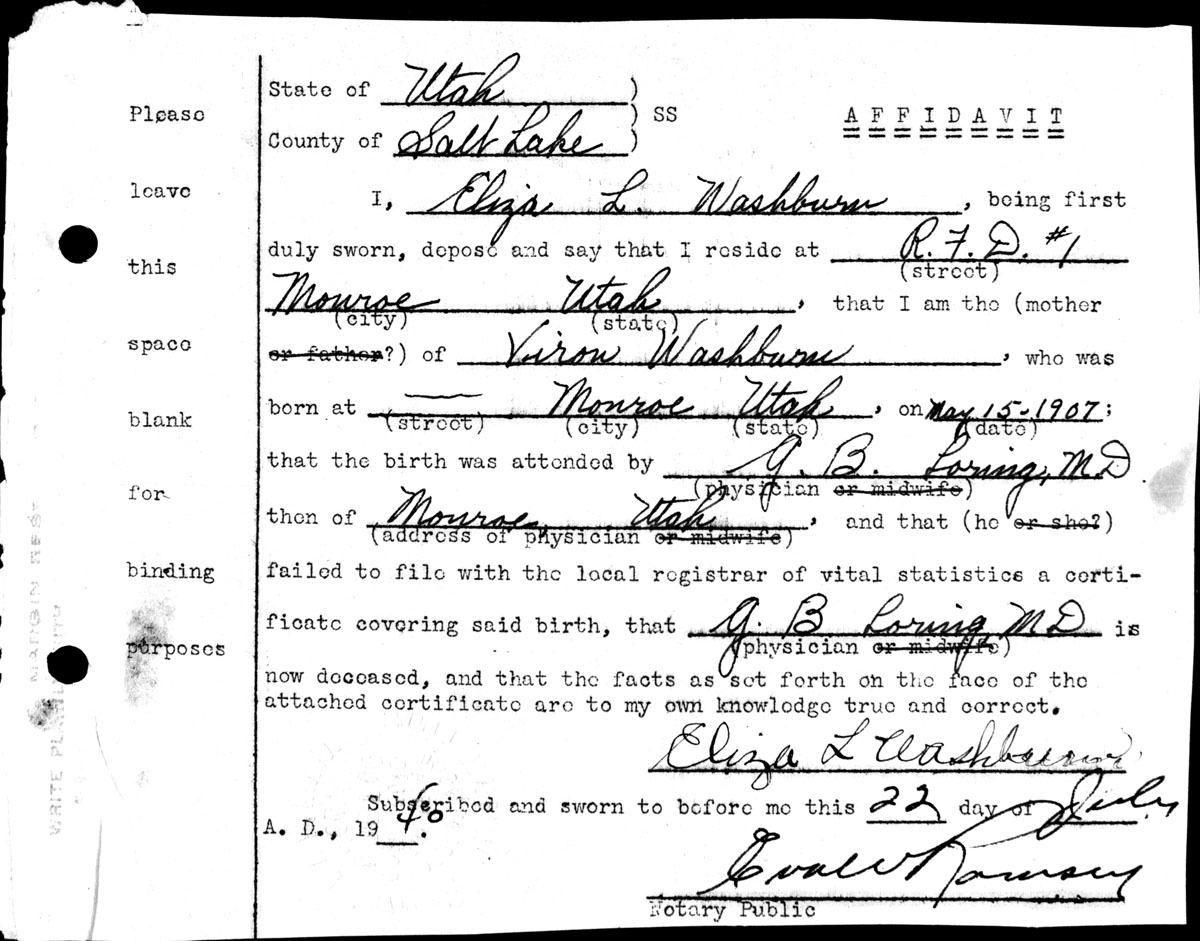 State of Utah ) SS
County of Salt Lake )
AFFIDAVIT
I, Eliza L. Washburn, being first
duly sworn, depose and say that I reside at R.F.D. #1
(street)
Monroe Utah, that I am the (mother
(city) (state)
or father?) of Viron Washburn, who was
born at — Monroe Utah, on May 15-1907;
(street) (city) (state) (date)
that the birth was attended by G. B. Loring, M.D
(physician or midwife)
then of Monroe Utah, and that (he or she?)
(address of physician or midwife)
failed to file with the local registrar of vital statistics a certi-
ficate covering said birth, that G. B Loring M D is
(physician or midwife)
now deceased, and that the facts as set forth on the face of the
attached certificate are to my own knowledge true and correct.
Eliza L Washburn
Subscribed and sworn to before me this 22 day of July
A. D., 1940.
Ramsey
Notary Public
Please
leave
this
space
blank
for
binding
purposes